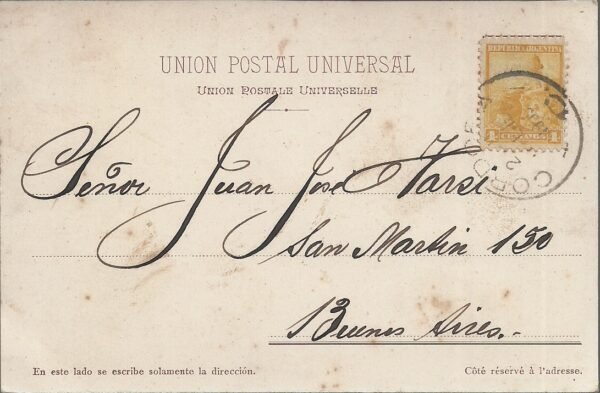 UNION POSTAL UNIVERSAL
UNION POSTALE UNIVERSELLE
REPUBLICA ARGENTINA
CENTAVO
CORDOBA
Señor Juan José Varsi
San Martin 150
Buenos Aires.-
En este lado se escribe solamente la dirección.
Côté réservé à l'adresse.